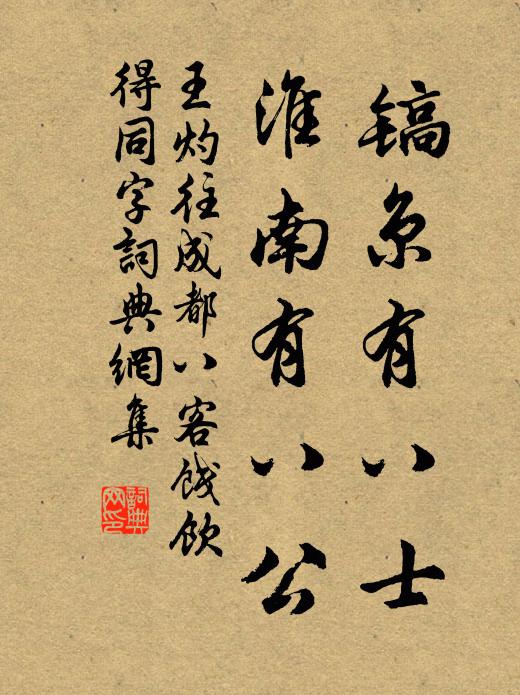 镐京有八士
淮南有八公
王灼往成都八客餞飲
得同字詞典網集
詞典
网印